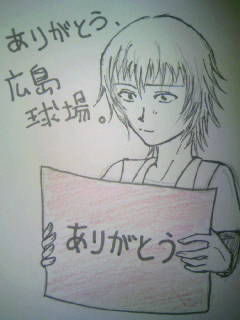 ありがとう、
広島
球場。
ありがとう